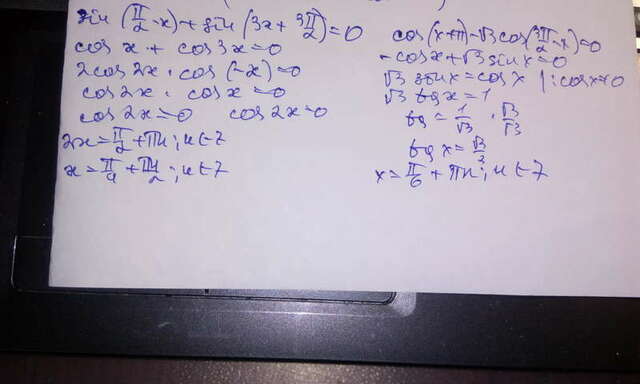 sin(π/2-x)+sin(3x+3π/2)=0
cos x + cos 3x=0
2cos 2x · cos(-x)=0
cos 2x · cos x = 0
cos 2x=0 cos 2x=0
2x=π/2+πn; n∈Z
x=π/4+πn/2; n∈Z
cos(x+π)-√3cos(3π/2-x)=0
-cosx+√3sinx=0
√3 sinx=cosx |:cosx≠0
√3 tgx=1
tg=1/√3 · √3/√3
tg x=√3/3
x=π/6+πn; n∈Z